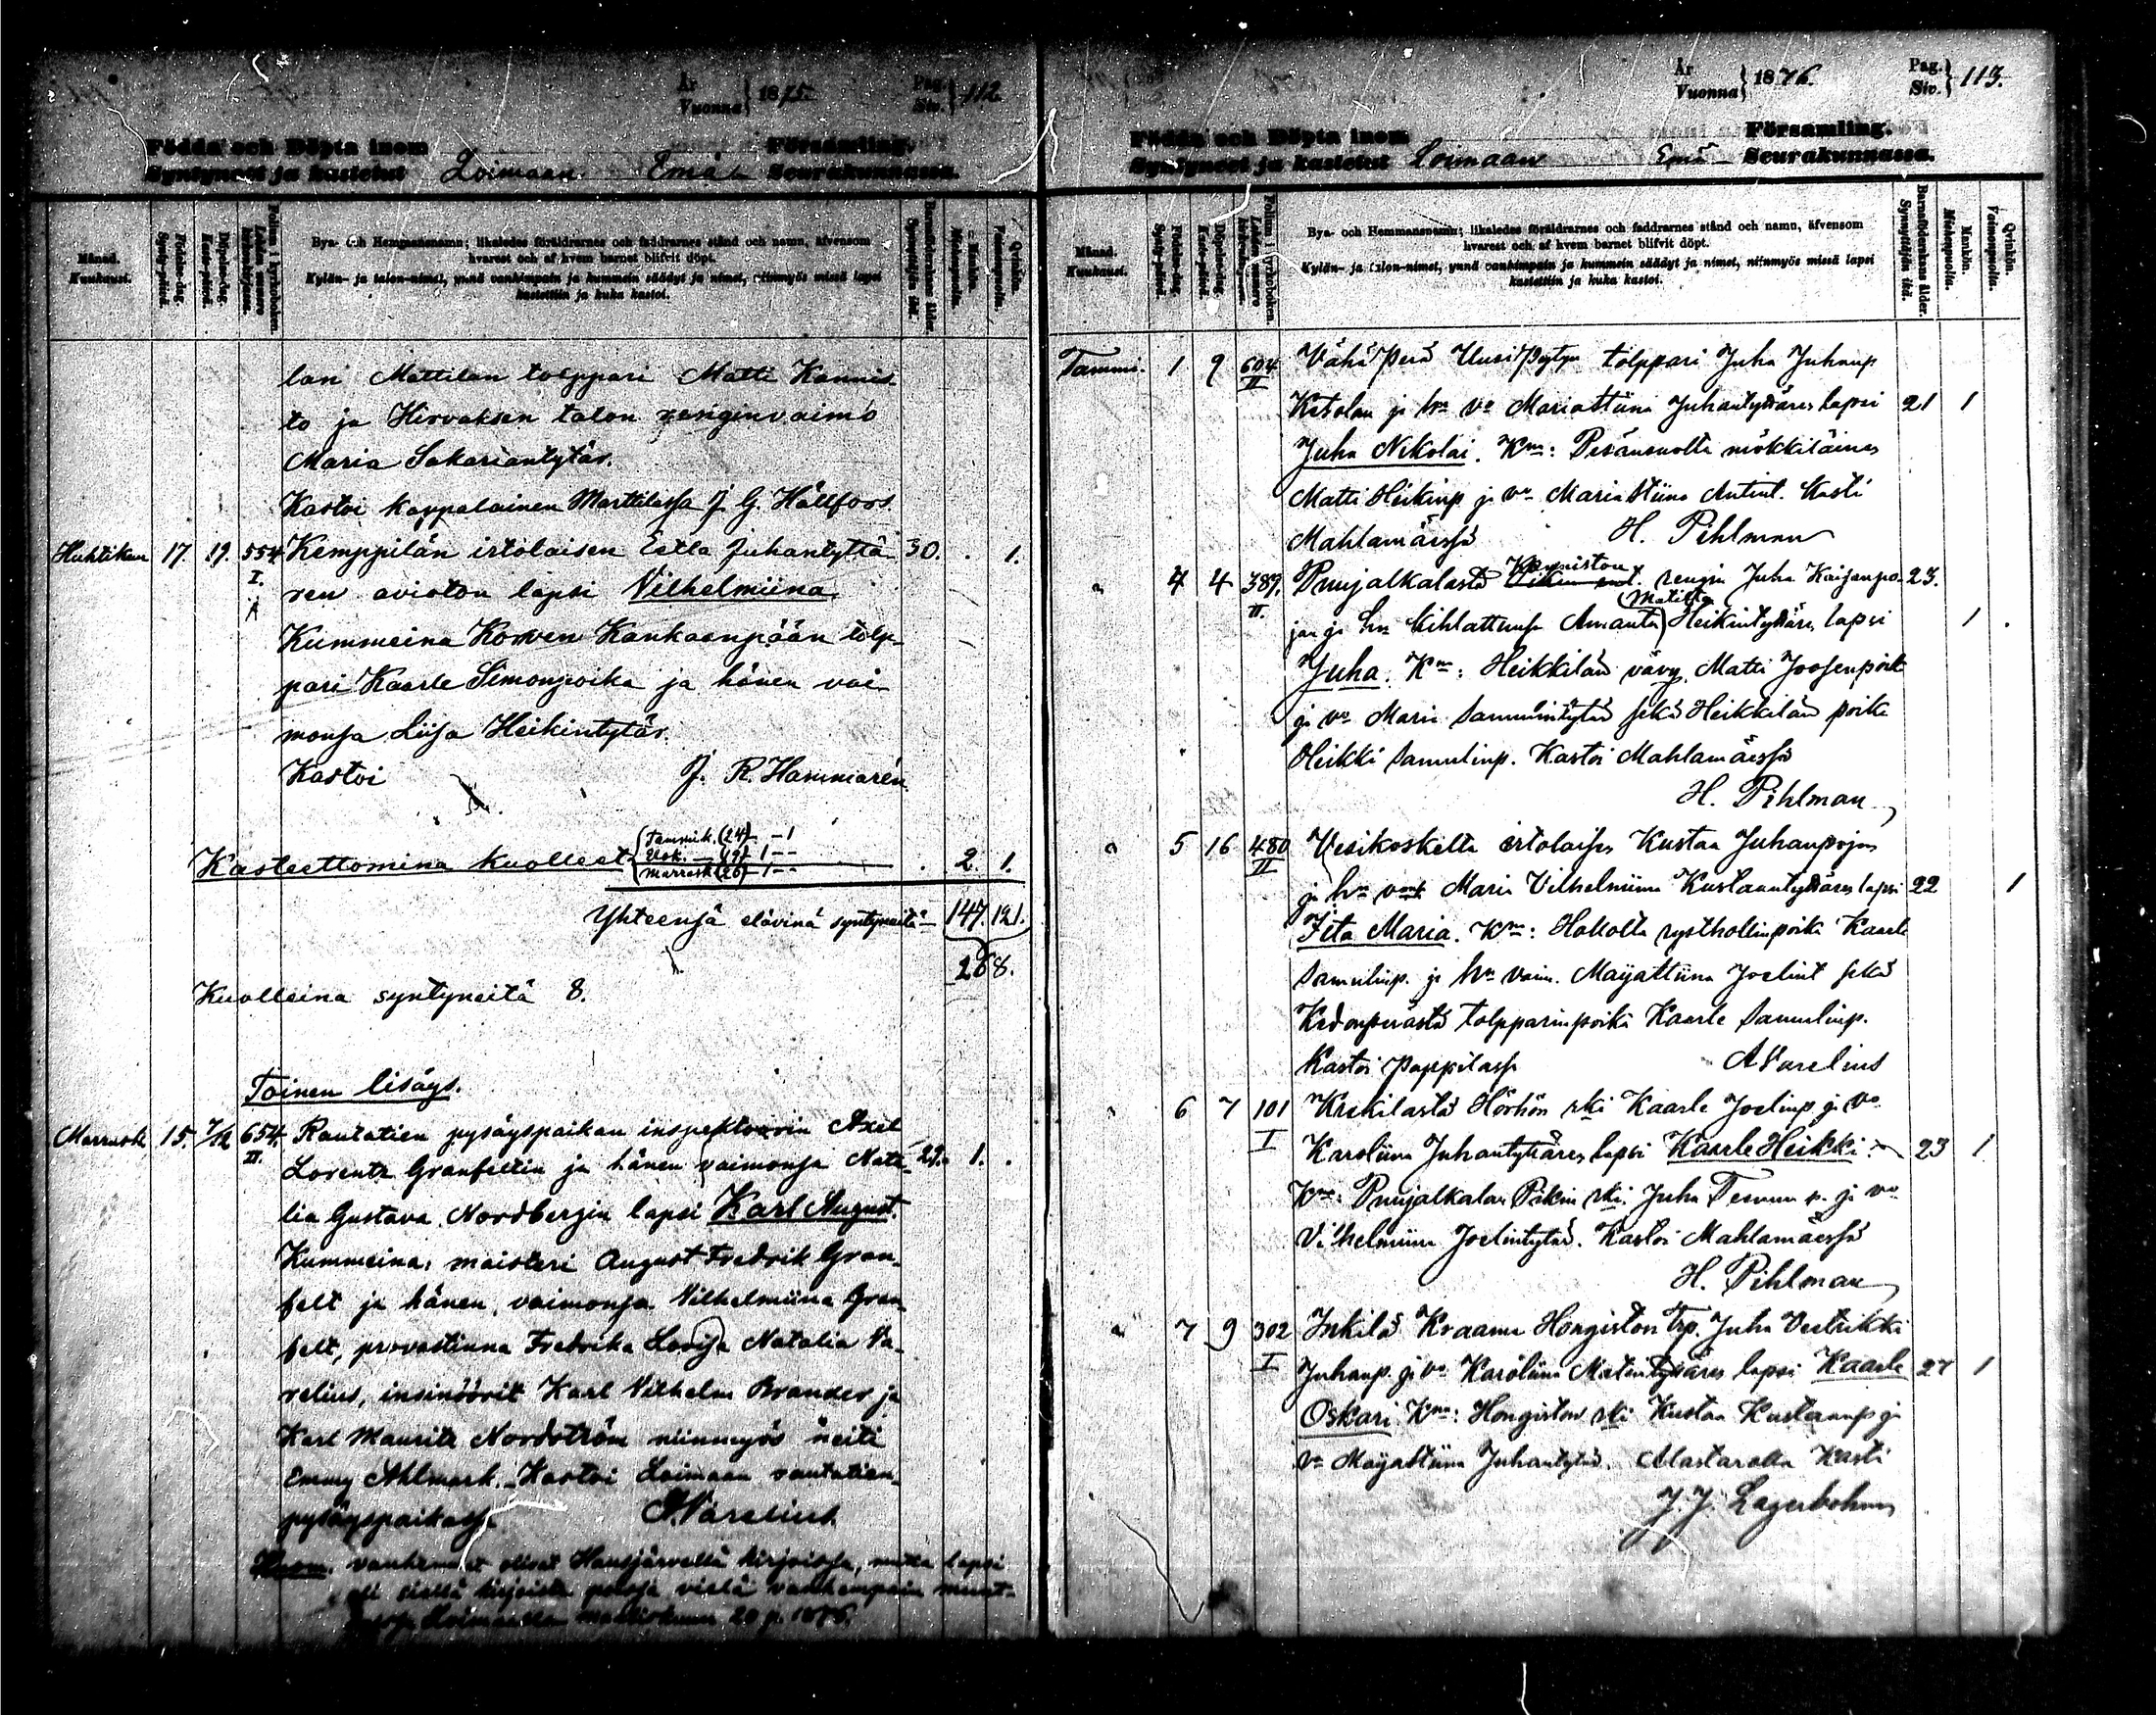 År
Vuonna } 1875.
Pag.
Siv. } 112.
Födda och Döpta inom Församling.
Syntyneet ja kastetut Loimaan Emä- Seurakunnassa.
Månad.
Kuukausi.
Födelse-dag.
Synty-päivä.
Döpelse-dag.
Kaste-päivä.
Folium i kyrkoboken.
Bya- och Hemmansnamn; likaledes föräldrarnes och faddrarnes stånd och namn, äfvensom
hvarest och af hvem barnet blifvit döpt.
Kylän- ja talon-nimet, ynnä vanhimpain ja kummein säädyt ja nimet, niinmyös missä lapsi
kastettiin ja kuka kastoi.
Barnaföderskans ålder.
Synnyttäjän ikä.
Mankön.
Miehenpuolia.
Qvinkön.
Vaimonpuolia.
lan Mattilan torppari Matti Kannis-
to ja Hirvaksen talon renginvaimo
Maria Sakariantytär.
Kastoi kappalainen Marttilassa J. G. Hällfors
Huhtikuu 17. 19. 554 Kemppilän irtolaisen Eetla Juhantyttä- 30. 1.
I. ren avioton lapsi Vilhelmiina
Kummeina Korven Kankaanpään torp-
pari Kaarle Simonpoika ja hänen vai-
monsa Liisa Heikintytär.
Kastoi J. R. Hammarén.
Tammik. (24) – 1
Elok. – (19) 1 –
Kasteettomina kuolleet Marrask (26) 1 – 2. 1.
Yhteensä elävinä syntyneitä – 147. 121.
268.
Kuolleina syntyneitä 8.
Toinen lisäys.
Marrask. 15. 7/12 654 Rautatien pysäyspaikan inspehtoorin Axel
III. Lorentz Granfeltin ja hänen vaimonsa Nata- 29. 1.
lia Gustava Nordbergin lapsi Karl August.
Kummeina: maisteri August Fredrik Gran-
felt ja hänen vaimonsa Vilhelmiina Gran-
felt, provastinna Fredrika Lovisa Natalia Va-
relius, insinöörit Karl Vilhelm Brander ja
Karl Mauritz Nordström niinmyös neiti
Emmy Ahlmark. Kastoi Loimaan rautatien-
pysäyspaikassa A. Varelius.
Huom. vanhemmat olivat Hausjärvellä kirjoissa, mutta lapsi
Loimaalla maaliskuun 20 p. 1876.
År
Vuonna } 1876.
Pag.
Siv. } 113.
Födda och Döpta inom Församling.
Syntyneet ja kastetut Loimaan Emä- Seurakunnassa.
Månad.
Kuukausi.
Födelse-dag.
Synty-päivä.
Döpelse-dag.
Kaste-päivä.
Folium i kyrkoboken.
Bya- och Hemmansnamn; likaledes föräldrarnes och faddrarnes stånd och namn, äfvensom
hvarest och af hvem barnet blifvit döpt.
Kylän- ja talon-nimet, ynnä vanhimpain ja kummein säädyt ja nimet, niinmyös missä lapsi
kastettiin ja kuka kastoi.
Barnaföderskans ålder.
Synnyttäjän ikä.
Mankön.
Miehenpuolia.
Qvinkön.
Vaimonpuolia.
Tammi. 1 9 604 Vähä Perä Uusi torppari Juha Juhanp
II Ketolan ja hn vo Mariastiina Juhantyttären lapsi 21 1
Juha Nikolai. Km: Pesänsuolta mökkiläinen
Matti Heikinp ja vo Mariastiina Antint. Kasti
Mahlamäessä H. Pihlman
Kanniston
4 4 389. Puujalkalasta rengin Juha Kaisanpo- 23.
Matilda
II. jan ja hn kihlattunsa Amanta Heikintyttären lapsi 1
Juha. Km: Heikkilän vävy Matti Joosenpoik
ja vo Maria Samulintytär sekä Heikkilän poika
Heikki Samulinp. Kastoi Mahlamäessä
H. Pihlman
5 16 480 Vesikoskelta irtolaisen Kustaa Juhanpojan
II ja hn Maria Vilhelmiina Kustaantyttären lapsi 22 1
Fita Maria. Km: Hollolta rysthollinpoika Kaarle
Samulinp. ja hn vaim. Majastiina Joelint sekä
Kedonperästä torpparinpoika Kaarle Samulinp.
Kastoi pappilassa A Varelius
6 7 101 Krekilästä Hörhön rki Kaarle Joelinp ja vo
I Karoliina Juhantyttären lapsi Kaarle Heikki. 23 1
Km: Puujalkalan rki Juha p. ja vo
Vilhelmiina Joelintytär. Kastoi Mahlamäessä
H. Pihlman
7 9 302 Inkilä Kraanu Hongiston trp. Juha Vestrikki
I Juhanp. ja vo Karoliina Matintyttären lapsi Kaarle 27 1
Oskari Km: Hongiston rki Kustaa Kustaanp ja
vo Majastiina Juhantytär. Alastarolla Kasti
J. J. Lagerbohm